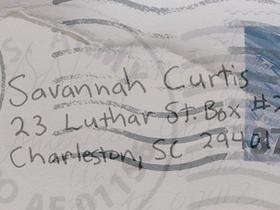 Savannah Curtis
23 Luthar St. Box #2
Charleston, SC 29401